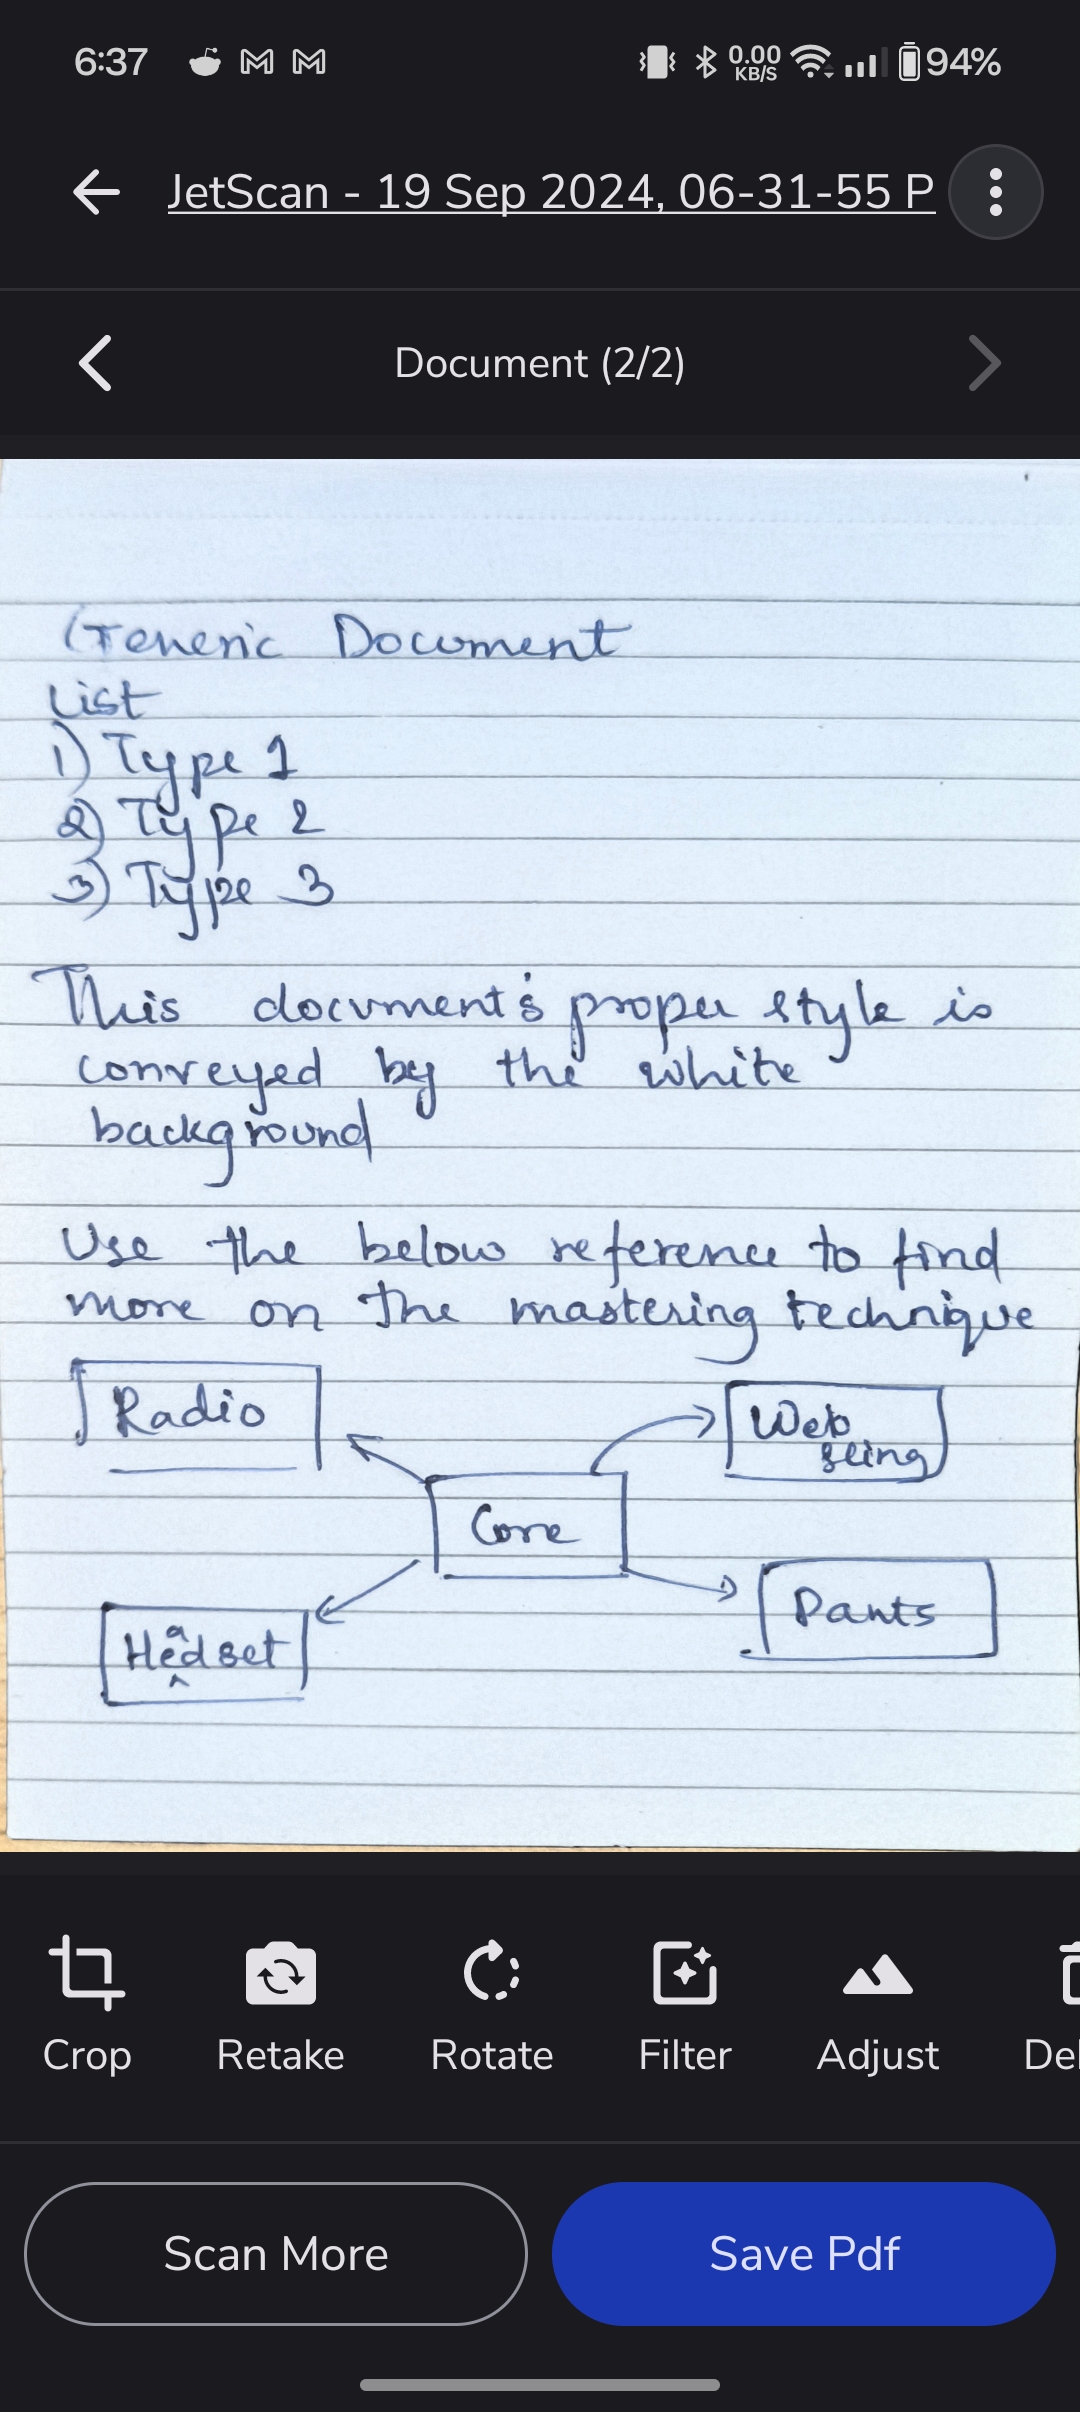 6:37
0.00
KB/S
94%
JetScan - 19 Sep 2024, 06-31-55 P
Document (2/2)
Generic Document
List
1) Type 1
2) Type 2
3) Type 3
This document's proper style is
conveyed by the white
background
Use the below reference to find
more on the mastering technique
Radio
Web
sling
Core
Pants
Headset
Crop Retake Rotate Filter Adjust Del
Scan More Save Pdf